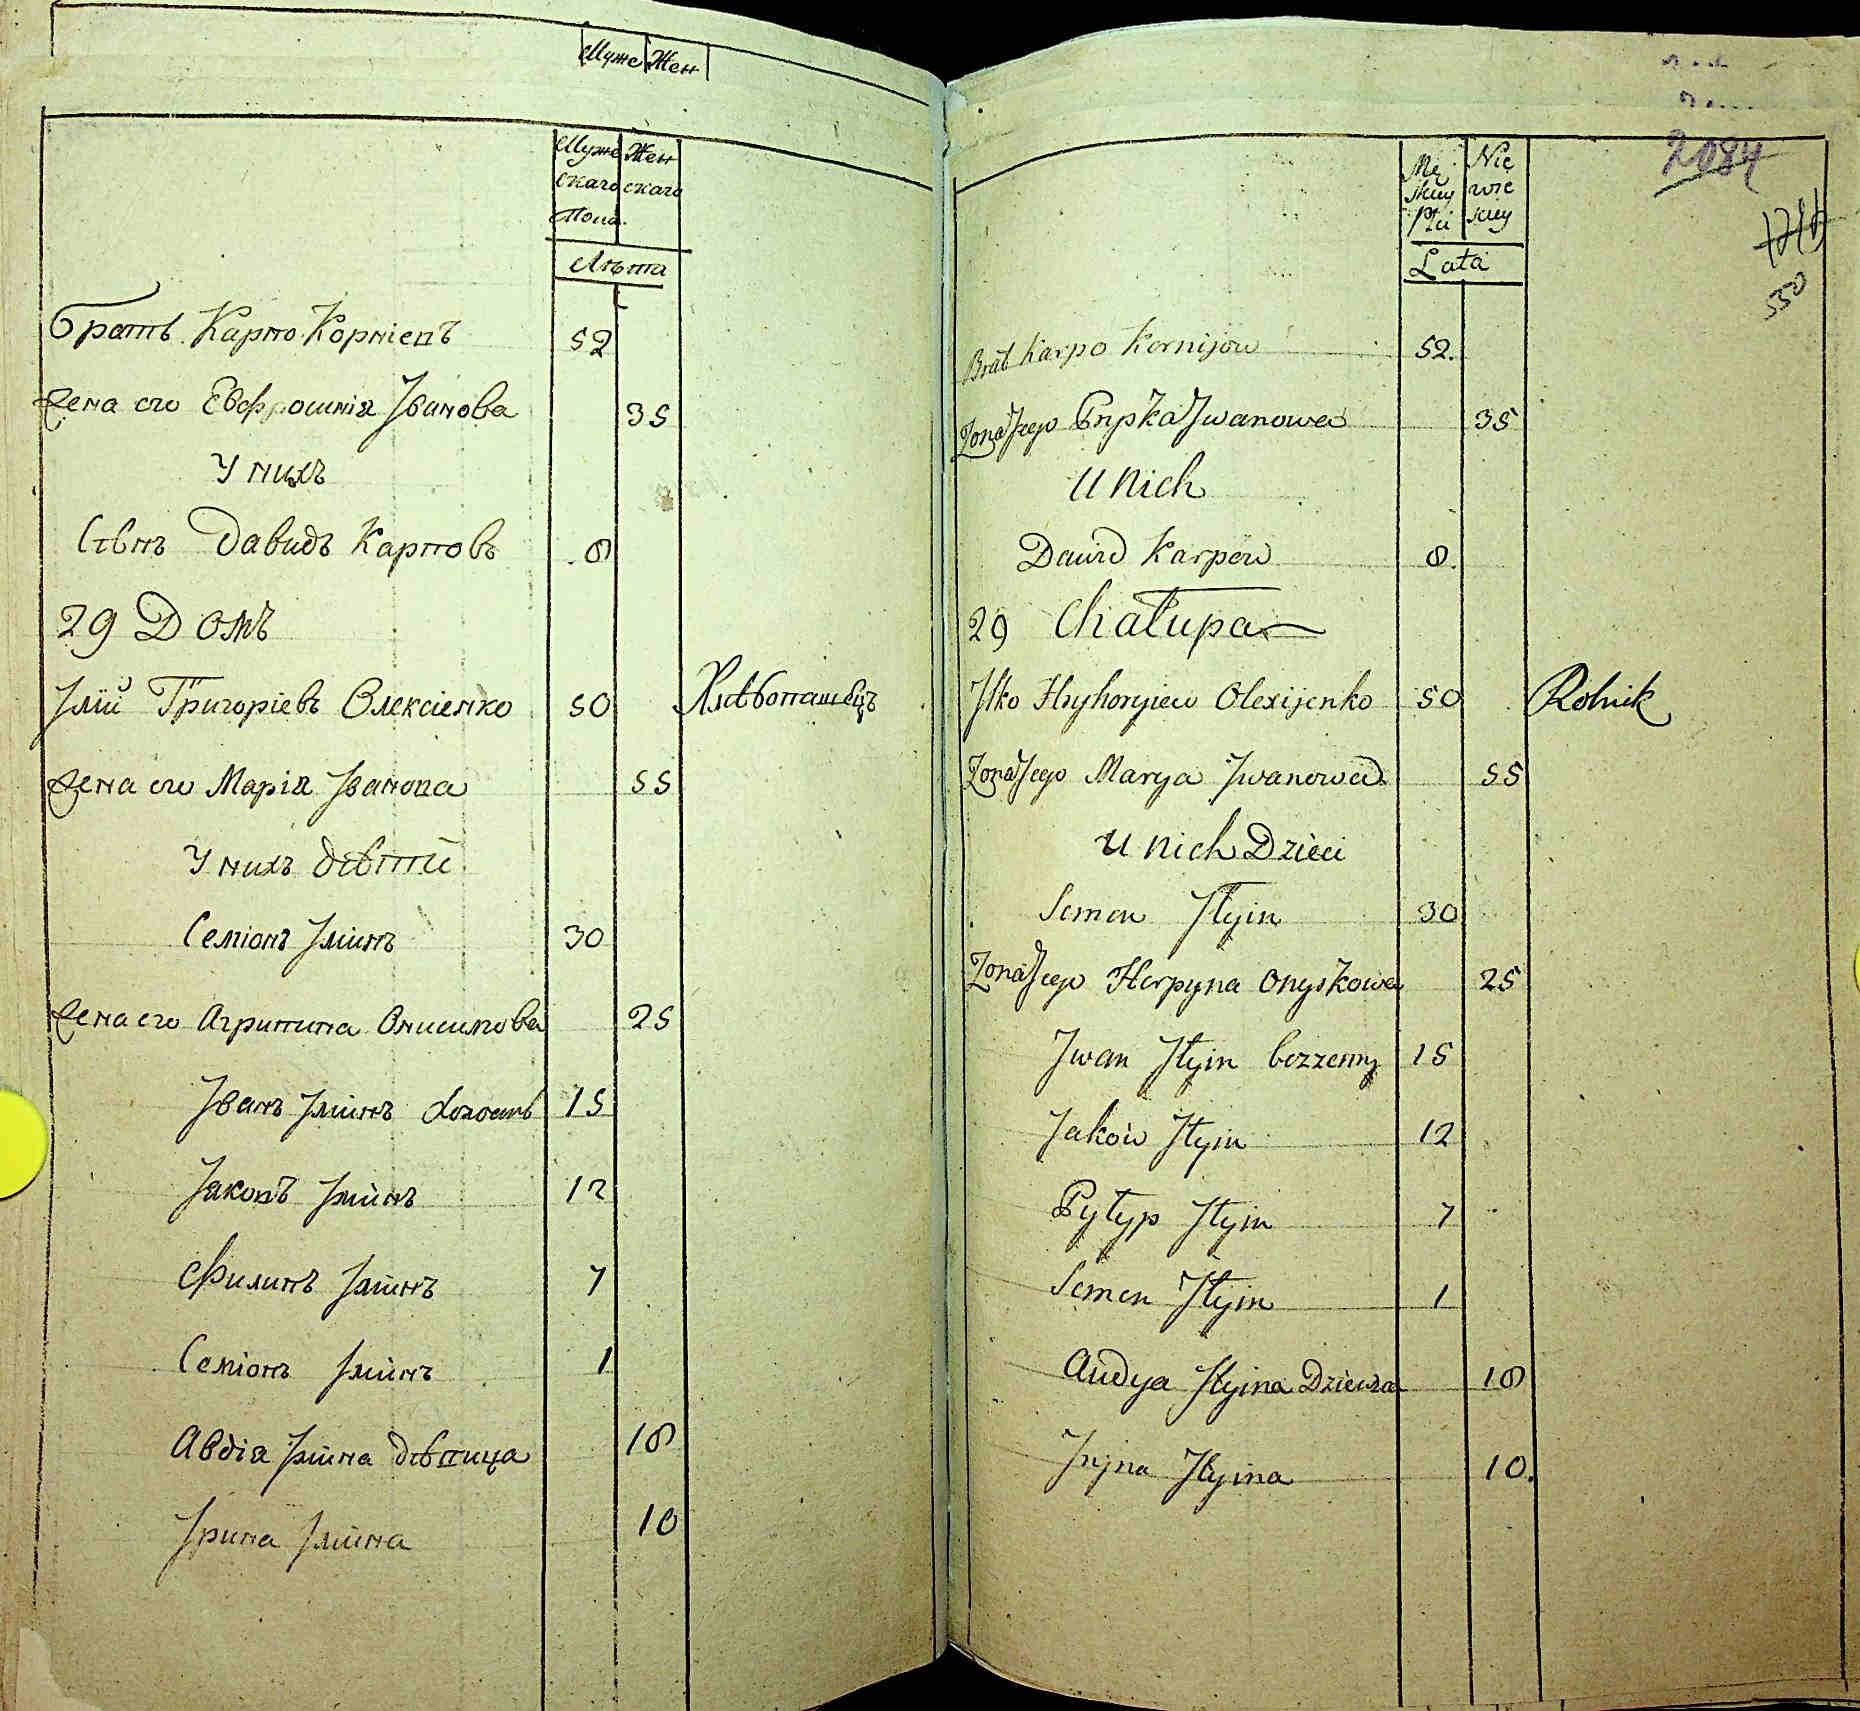 Муже Жен
Муже Жен
скаго скаго
Пола
Лѣта
братъ Карпо Корнiевъ 52
жена его Евфросинiя Iванова 35
У нихъ
Сынъ Давидъ Карповъ 8
29 Домъ
Iлiй Григорiевъ Олексiенко 50 Хлѣбопашецъ
жена его Марiя Iванова 55
У нихъ дѣтей
Семiонъ Iлiинъ 30
жена его Агрипина Онисимова 25
Iванъ Iлiинъ холостъ 15
Iяковъ Iлiинъ 12
Филипъ Iлiинъ 7
Семiонъ Iлiинъ 1
Авдiя Iлiина дѣвица 18
Iрина Iлiина 10
2084
530
Mę Nie
skiey wie
Płci skiey
Lata
Brat Karpo Kornijow 52.
Żona Jego Pryska Jwanowa 35
U Nich
Dawid Karpow 8.
29 Chałupa
Jlko Hryhoryiew Olexijenko 50 Rolnik
Żona Jego Marya Jwanowa 55
U Nich Dzieci
Semen Jłyin 30
Żona Jego Horpyna Onyskowa 25
Jwan Jłyin bezzenny 15
Jakow Jłyin 12
Pyłyp Jłyin 7
Semen Jłyin 1
Audya Jłyina Dziewka 18
Jryna Jłyina 10.